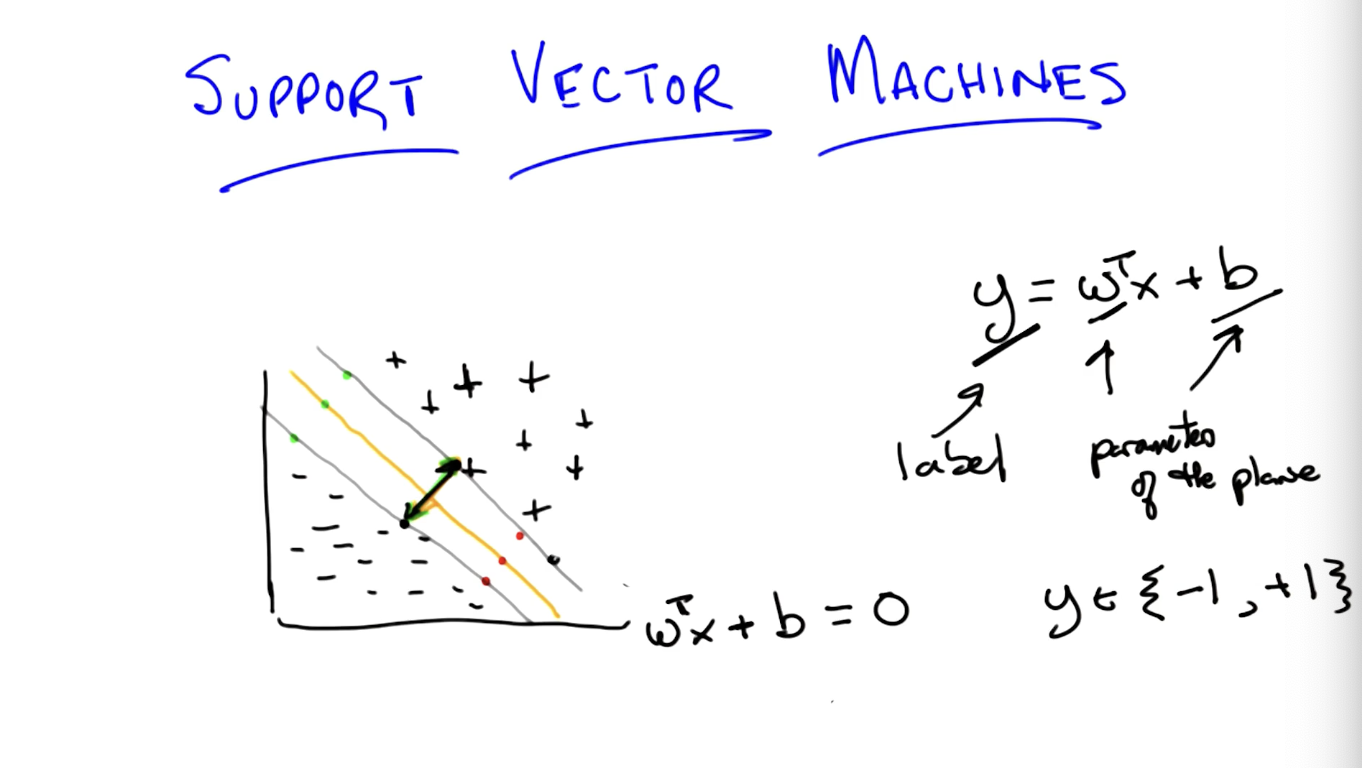 SUPPORT VECTOR MACHINES
y = wᵀx + b
label
parameters
of the plane
wᵀx + b = 0
y ∈ {-1, +1}